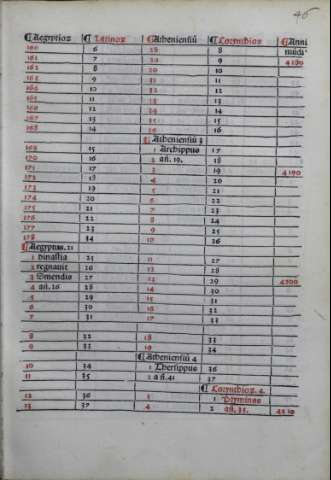 46
¶Aegyptioꝝ ¶Latinoꝝ ¶Atheniensiū ¶Corynthioꝝ ¶Anni
160 6 28 8 mūdi
161 7 29 9 4180
162 8 30 10
163 9 31 11
164 10 32 12
165 11 33 13
166 12 34 14
167 13 35 15
168 14 36 16
¶Atheniensiū 3
169 15 1 Archippus 17
170 16 2 añ. 19. 18
171 17 3 19 4190
172 18 4 20
173 19 5 21
174 20 6 22
175 21 7 23
176 22 8 24
177 23 9 25
178 24 10 26
¶Aegyptus. 21
1 dinastia 25 11 27
2 regnauit 26 12 28
3 Smendis 27 13 29 4200
4 añ. 26 28 14 30
5 29 15 31
6 30 16 32
7 31 17 33
8 32 18 33
9 33 19 34
¶Atheniensiū 4
10 34 1 Thersippus 36
11 35 2 añ. 41 37
¶Corynthioꝝ. 2.
12 36 3 1
13 37 4 2 añ. 35. 4210